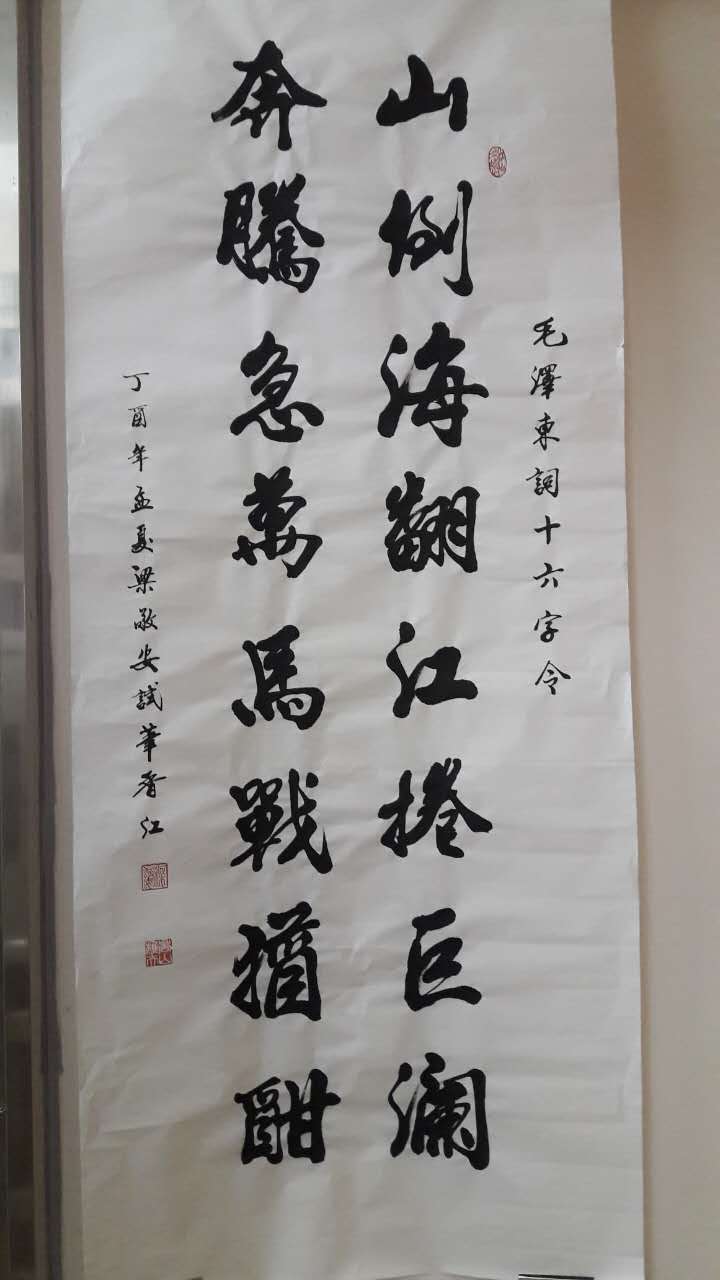 毛澤東詞十六字令
山倒海翻江捲巨瀾
奔騰急萬馬戰猶酣
丁酉年孟夏梁敬安試筆香江